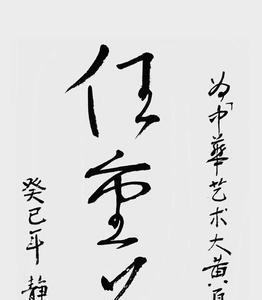 为「中華艺术大黄
任重
癸巳年 静